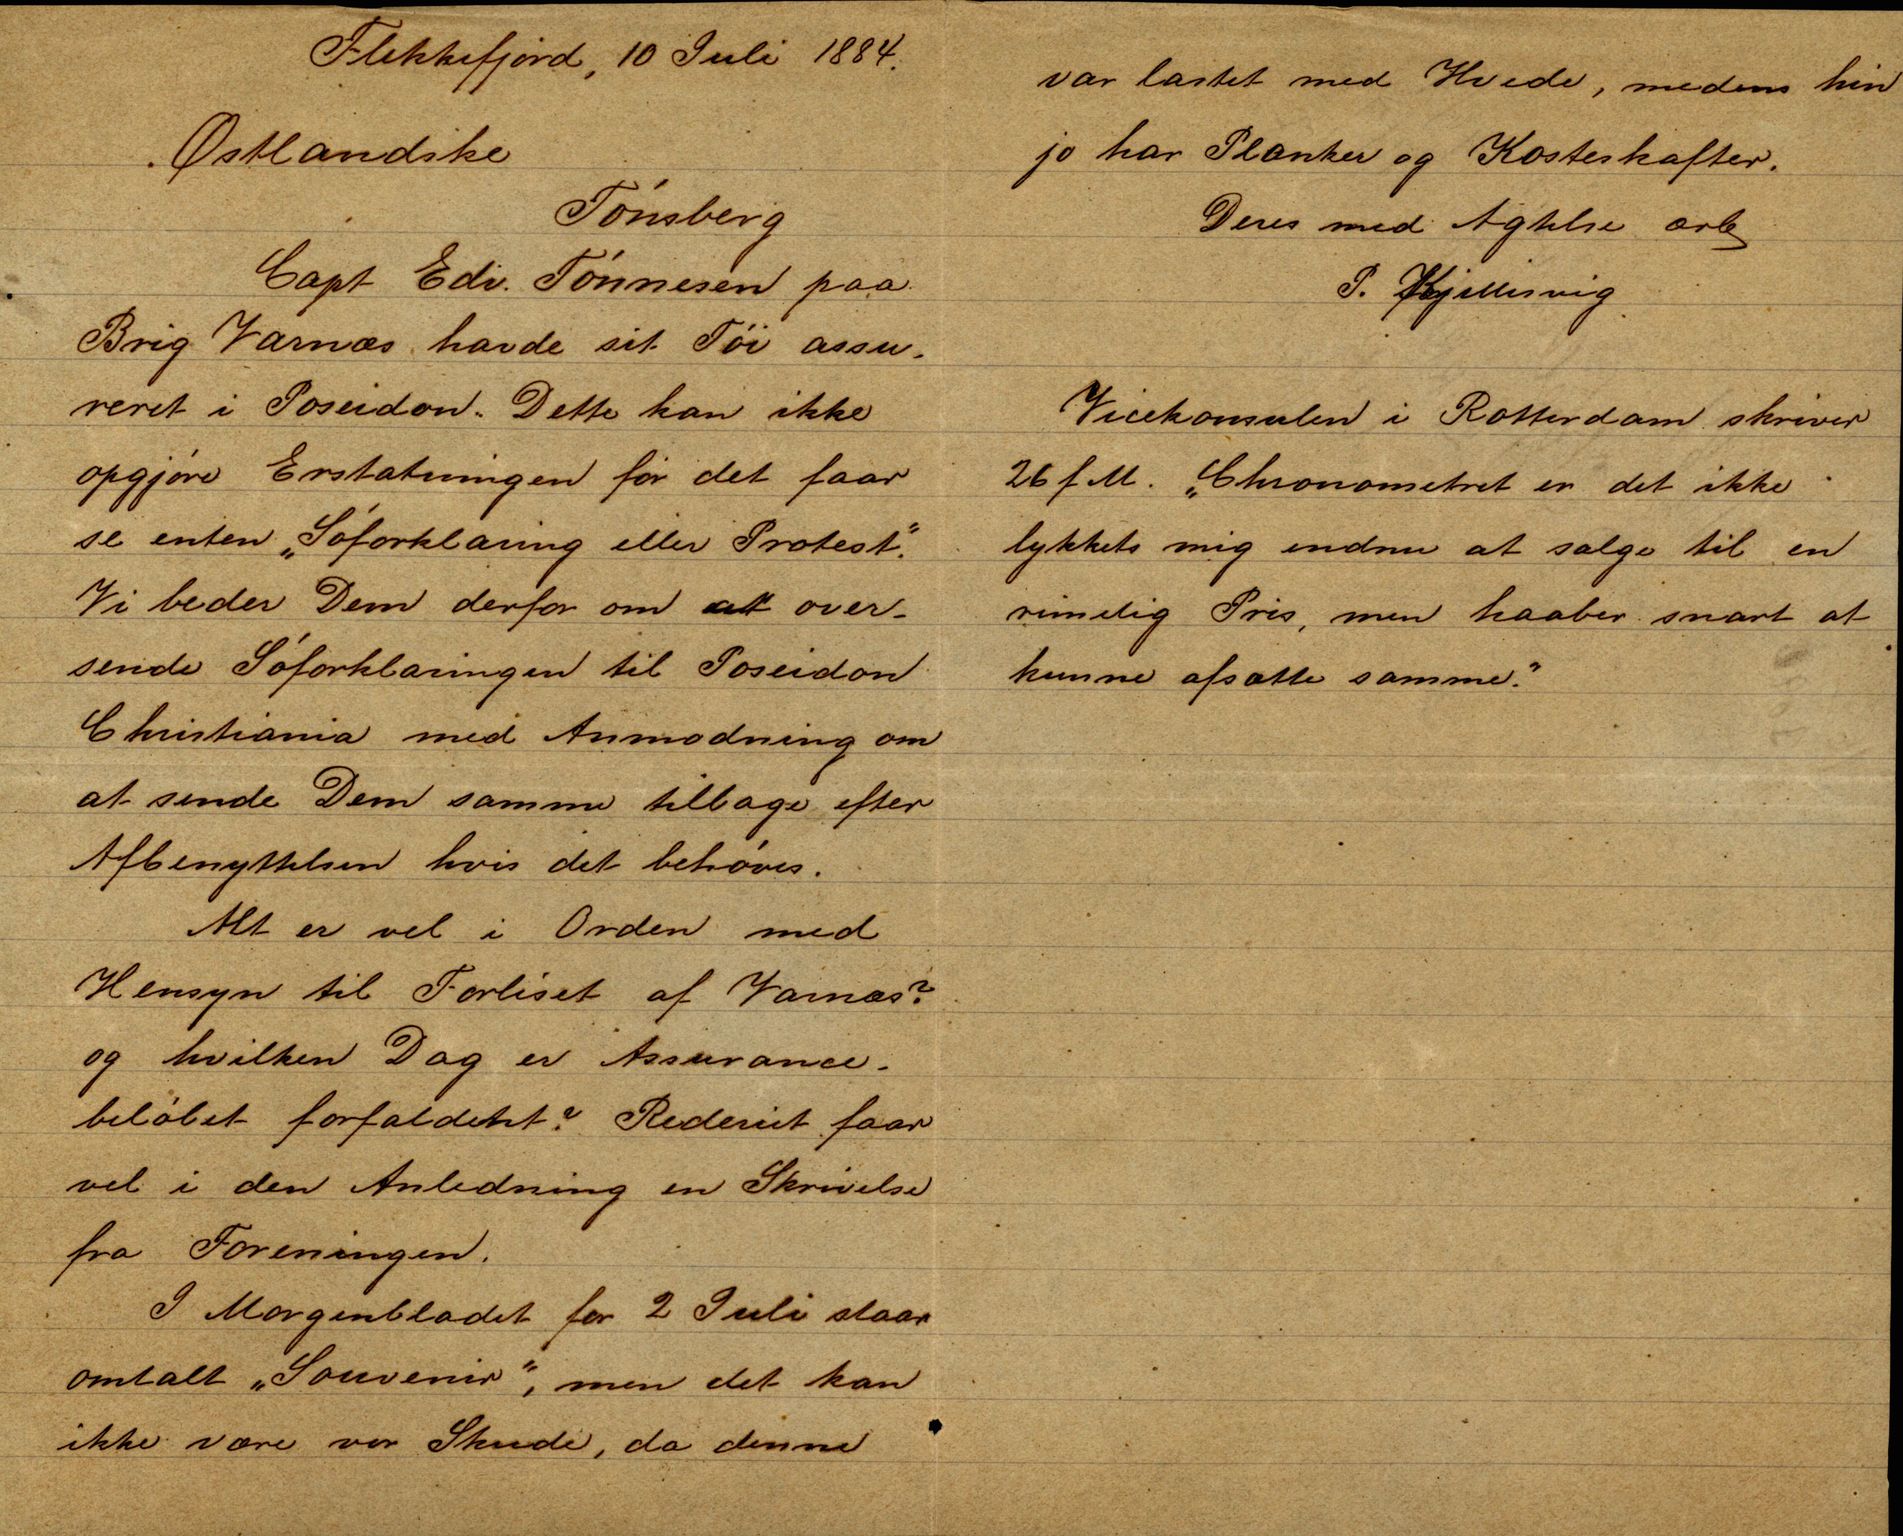 Flekkefjord, 10 Juli 1884.
Østlandske
Tónsberg
Capt Edv. Tónnesen paa
Brig Varnæs havde sit Tói assu-
reret i Poseidon. Dette kan ikke
opgjóre Erstatningen fór det faar
se enten „Sóforklaring eller Protest".
Vi beder Dem derfor om at over-
sende Sóforklaringen til Poseidon
Christiania med Anmodning om
at sende Dem samme tilbage efter
Afbenyttelsen hvis det behóves.
Alt er vel i Orden med
Hensyn til Forliset af Varnæs?
og hvilken Dag er Assurance-
belóbet forfaldent? Rederiet faar
vel i den Anledning en Skrivelse
fra Foreningen.
I Morgenbladet for 2 Juli staar
omtalt „Souvenir", men det kan
ikke være vor Skude, da denne
var lastet med Hvede, medens hin
jo har Planker og Kosteskafter.
Deres med Agtelse ærb
P. Kjellesvig
Vicekonsulen i Rotterdam skriver
26 f. M. „Chronometret er det ikke
lykkets mig endnu at sælge til en
rimelig Pris, men haaber snart at
kunne afsætte samme."